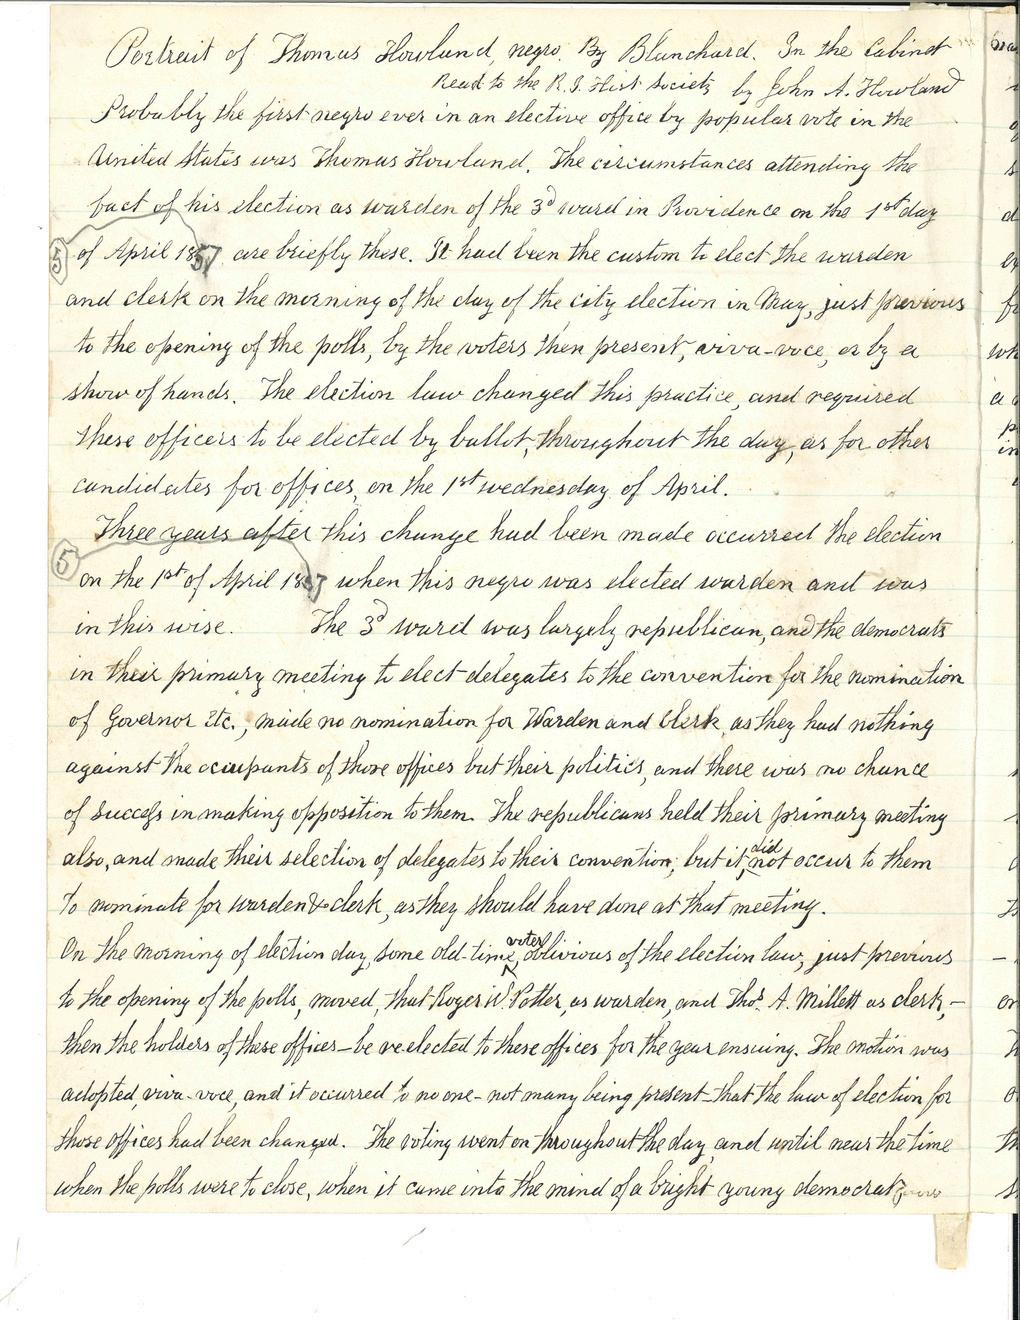 Portrait of Thomas Howland, negro. By Blanchard. In the Cabinet
Read to the R. I. Hist Society by John A. Howland
Probably the first negro ever in an elective office by popular vote in the
United States was Thomas Howland. The circumstances attending the
fact of his election as warden of the 3d ward in Providence on the 1st day
5 of April 1857 are briefly these. It had been the custom to elect the warden
and clerk on the morning of the day of the city election in May, just previous
to the opening of the polls, by the voters then present, viva-voce, or by a
show of hands. The election law changed this practice, and required
these officers to be elected by ballot, throughout the day, as for other
candidates for offices, on the 1st wednesday of April.
Three years after this change had been made occurred the election
5 on the 1st of April 1857 when this negro was elected warden and was
in this wise. The 3d ward was largely republican, and the democrats
in their primary meeting to elect delegates to the convention for the nomination
of Governor Etc., made no nomination for Warden and Clerk, as they had nothing
against the occupants of those offices but their politics, and there was no chance
of success in making opposition to them. The republicans held their primary meeting
also, and made their selection of delegates to their convention; but it did not occur to them
to nominate for warden & clerk, as they should have done at that meeting.
On the morning of election day, some old-time voter oblivious of the election law, just previous
to the opening of the polls, moved, that Roger W. Potter, as warden, and Thos. A. Millett as clerk,-
then the holders of these offices - be re elected to these offices for the year ensuing. The motion was
adopted, viva-voce, and it occurred to no one - not many being present - that the law of election for
those offices had been changed. The voting went on throughout the day, and until near the time
when the polls were to close, when it came into the mind of a bright young democrat